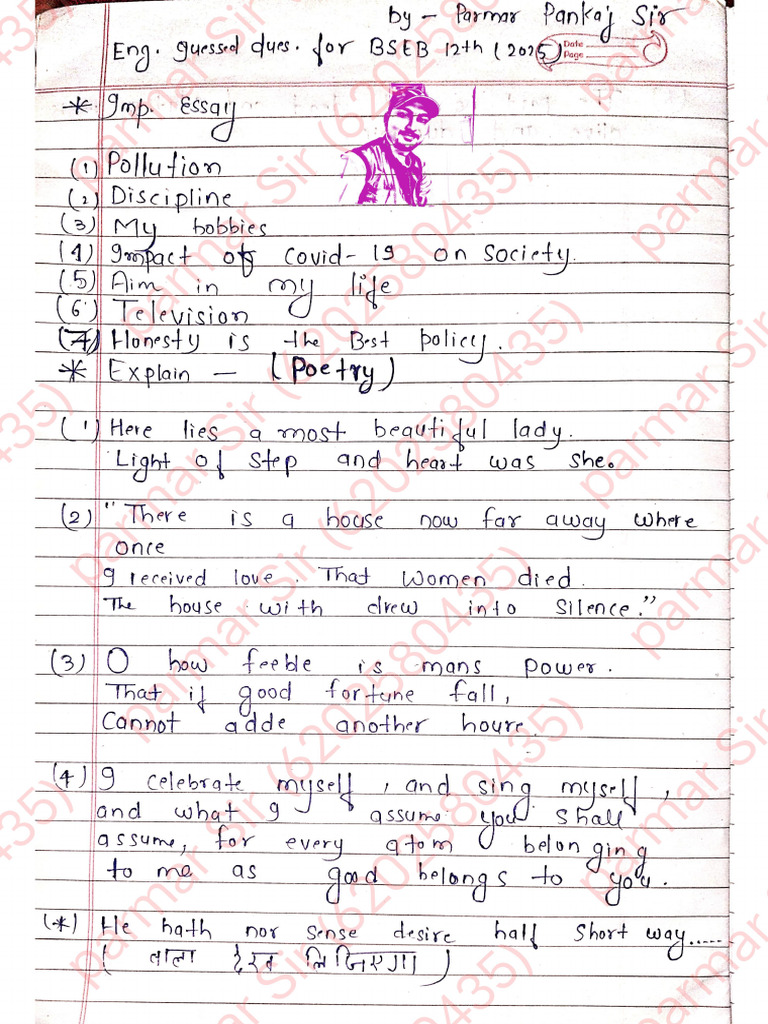 by - Parmar Pankaj Sir
Eng. guessed ques. for BSEB 12th (2025)
Date
Page
* Imp. Essay
(1) Pollution
(2) Discipline
(3) My hobbies
(4) Impact of covid-19 on society.
(5) Aim in my life
(6) Television
(7) Honesty is the Best policy.
* Explain - (Poetry)
(1) Here lies a most beautiful lady.
Light of step and heart was she.
(2) "There is a house now far away where
once
I received love. That women died.
The house with drew into silence."
(3) O how feeble is mans power.
That if good fortune fall,
Cannot adde another houre.
(4) I celebrate myself, and sing myself,
and what I assume you shall
assume, for every atom belonging
to me as good belongs to you.
(*) He hath nor sense desire half short way.....
( वाला देख लिजिएगा )
parmar Sir (6202580435)